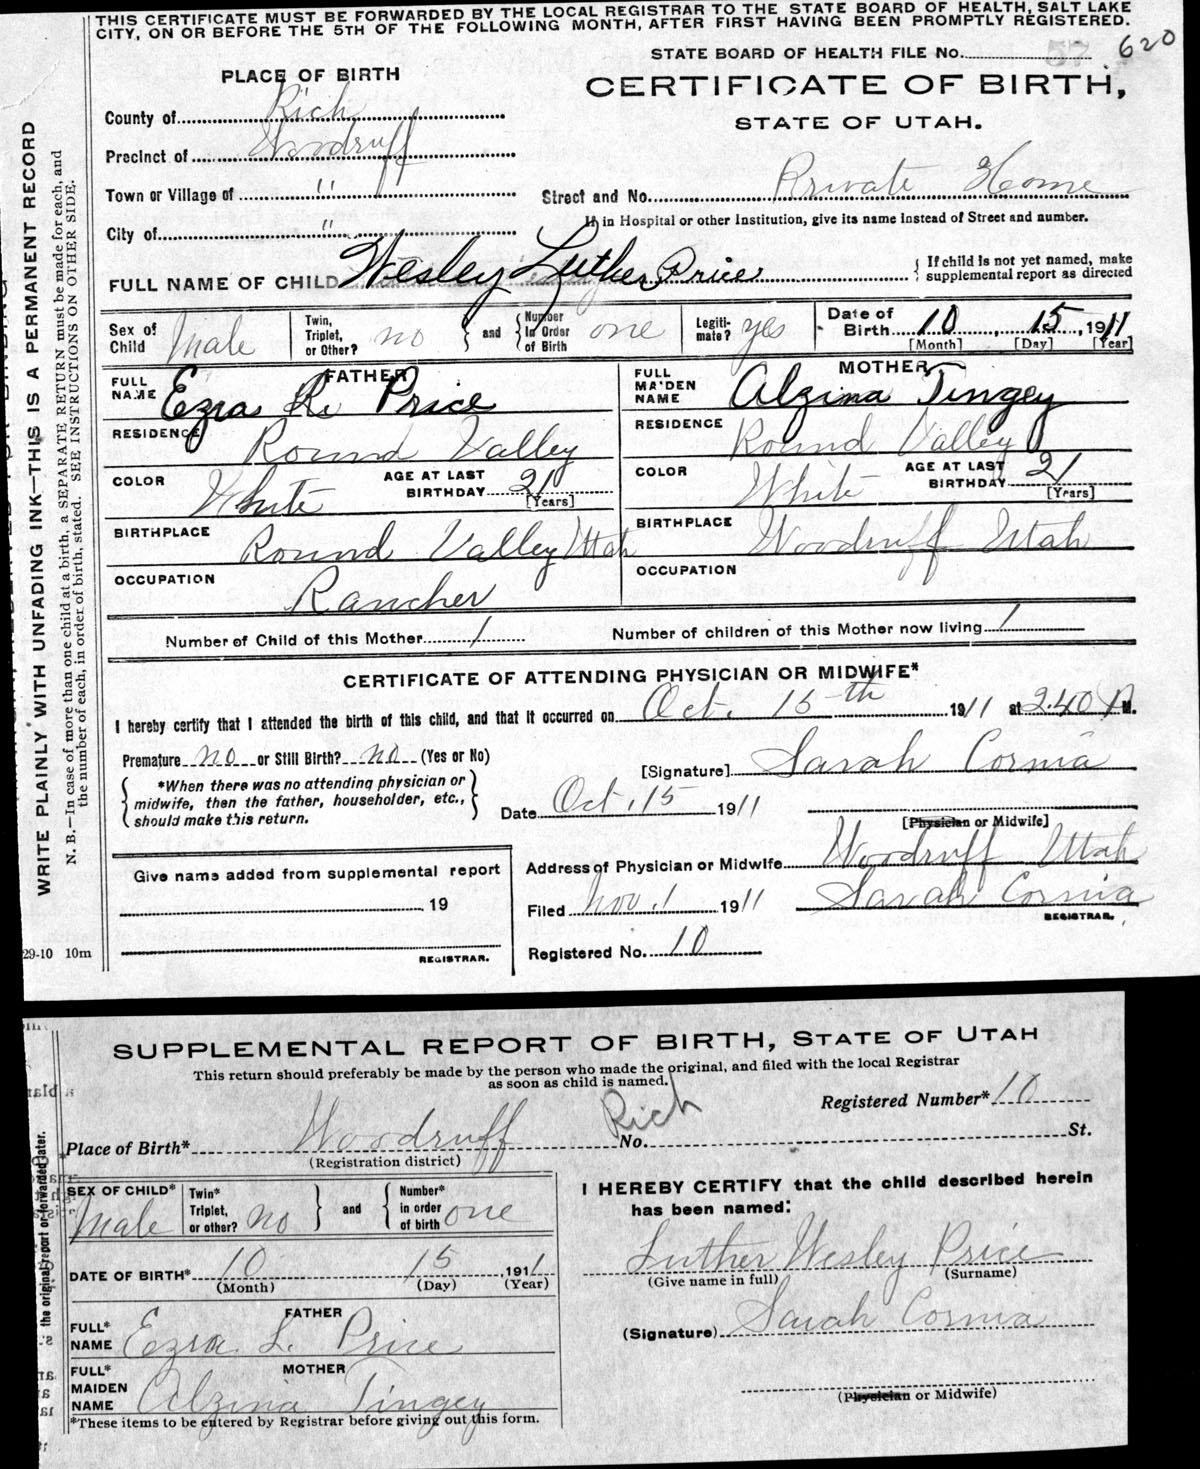 THIS CERTIFICATE MUST BE FORWARDED BY THE LOCAL REGISTRAR TO THE STATE BOARD OF HEALTH, SALT LAKE
CITY, ON OR BEFORE THE 5TH OF THE FOLLOWING MONTH, AFTER FIRST HAVING BEEN PROMPTLY REGISTERED.
STATE BOARD OF HEALTH FILE No. 57 620
PLACE OF BIRTH
CERTIFICATE OF BIRTH,
STATE OF UTAH.
County of Rich
Precinct of Woodruff
Town or Village of "
Street and No. Private Home
If in Hospital or other Institution, give its name instead of Street and number.
City of "
FULL NAME OF CHILD Wesley Luther Price { If child is not yet named, make supplemental report as directed
Sex of Child Male Twin, Triplet, or Other? no } and { Number In Order of Birth one Legiti-mate? yes Date of Birth 10, 15, 1911
[Month] [Day] [Year]
FATHER MOTHER
FULL NAME Ezra L. Price FULL MAIDEN NAME Alzina Tingey
RESIDENCE Round Valley RESIDENCE Round Valley
COLOR White AGE AT LAST BIRTHDAY 21 [Years] COLOR White AGE AT LAST BIRTHDAY 21 [Years]
BIRTHPLACE Round Valley Utah BIRTHPLACE Woodruff Utah
OCCUPATION Rancher OCCUPATION
Number of Child of this Mother 1 Number of children of this Mother now living 1
CERTIFICATE OF ATTENDING PHYSICIAN OR MIDWIFE*
I hereby certify that I attended the birth of this child, and that it occurred on Oct. 15th 1911 at 2.40 P M.
Premature no or Still Birth? no (Yes or No)
[Signature] Sarah Cornia
{ *When there was no attending physician or midwife, then the father, householder, etc., should make this return. }
Date Oct. 15 1911
[Physician or Midwife]
Address of Physician or Midwife Woodruff Utah
Give name added from supplemental report
19
Filed Nov. 1 1911 Sarah Cornia
REGISTRAR.
Registered No. 10
REGISTRAR.
29-10 10m
WRITE PLAINLY WITH UNFADING INK—THIS IS A PERMANENT RECORD
N. B.—In case of more than one child at a birth, a SEPARATE RETURN must be made for each, and
the number of each, in order of birth, stated. SEE INSTRUCTIONS ON OTHER SIDE.
SUPPLEMENTAL REPORT OF BIRTH, STATE OF UTAH
This return should preferably be made by the person who made the original, and filed with the local Registrar
as soon as child is named.
Registered Number* 10
Place of Birth* Woodruff Rich No. St.
(Registration district)
SEX OF CHILD* Male Twin* Triplet, or other? no } and { Number* in order of birth one
I HEREBY CERTIFY that the child described herein
has been named:
Luther Wesley Price
(Give name in full) (Surname)
DATE OF BIRTH* 10 15, 1911
(Month) (Day) (Year)
FATHER
FULL* NAME Ezra L. Price
(Signature) Sarah Cornia
MOTHER
FULL* MAIDEN NAME Alzina Tingey
(Physician or Midwife)
*These items to be entered by Registrar before giving out this form.
the original report or forwarded later.